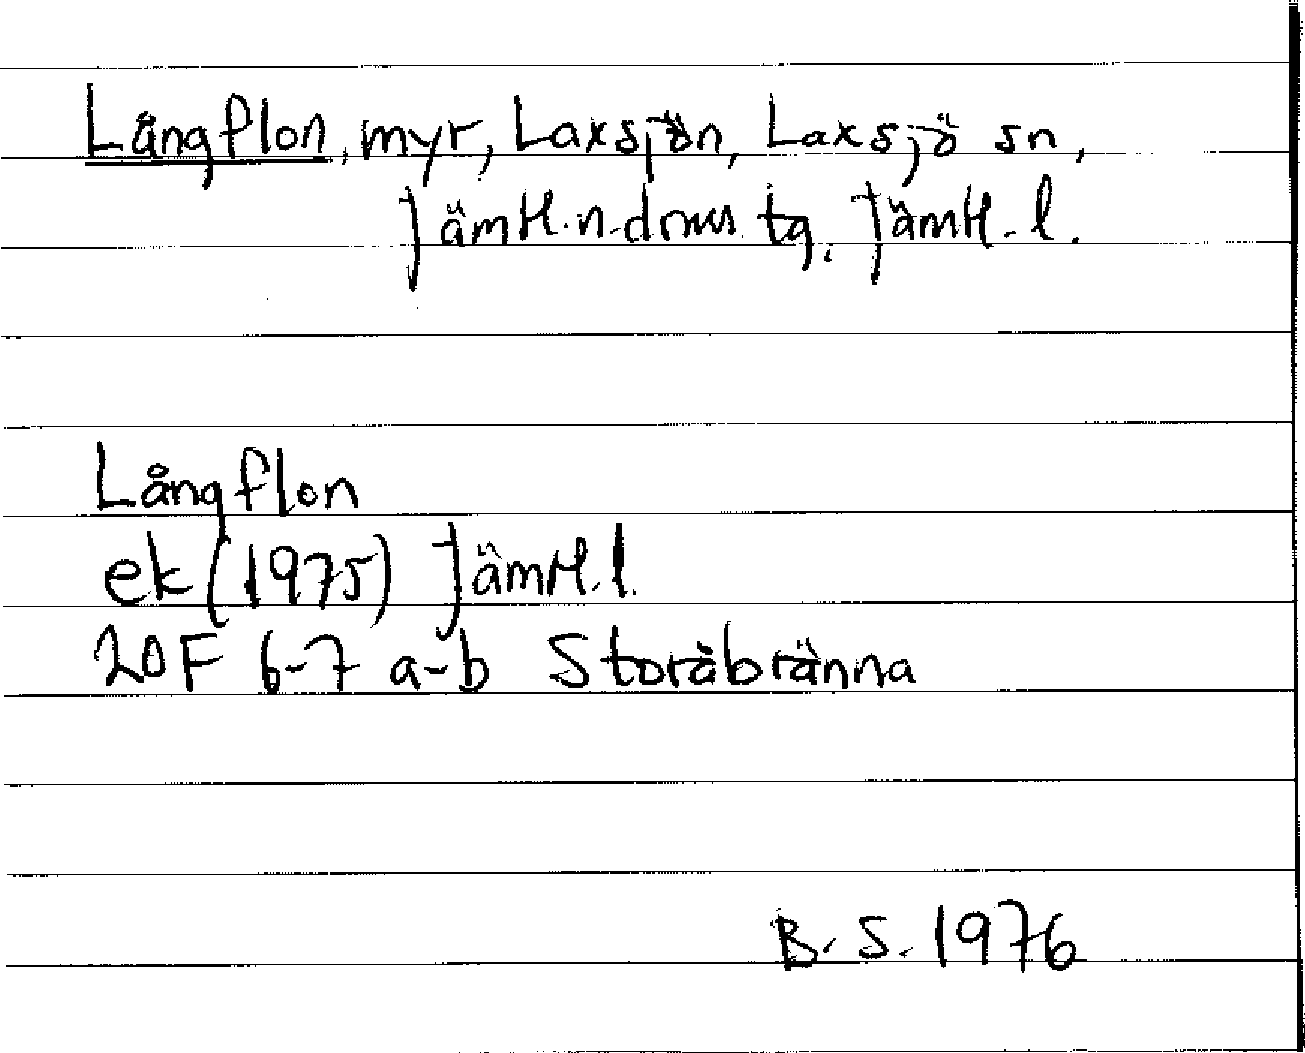 Långflon, myr, Laxsjön, Laxsjö sn,
Jämtl. n. doms. tg, Jämtl. l.
Långflon
ek (1975) Jämtl. l.
20F 6-7 a-b Storåbränna
B. S. 1976